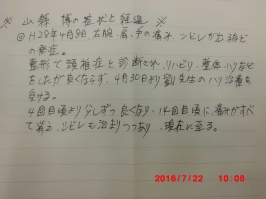 ※ 山縣 博の症状と経過 ※
◎ H28年4月8日 右腕、肩、手の痛み、シビレが出 
の発症。
整形で頸椎症と診断され、リハビリ、整体、ハリなど
をしたが良くならず、4月30日より劉先生のハリ治療を
受ける。
4回目頃より少しずつ良くなり、14回目頃に痛みがすべ
て消え、シビレも治まりつつあり、現在に至る。
2016/7/22 10:08